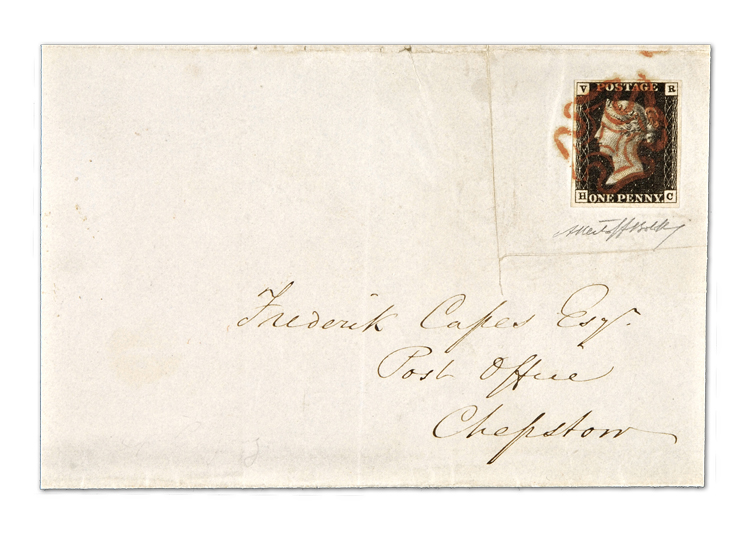 V POSTAGE R
H ONE PENNY C
Frederik Capes Esqr.
Post Office
Chepstow